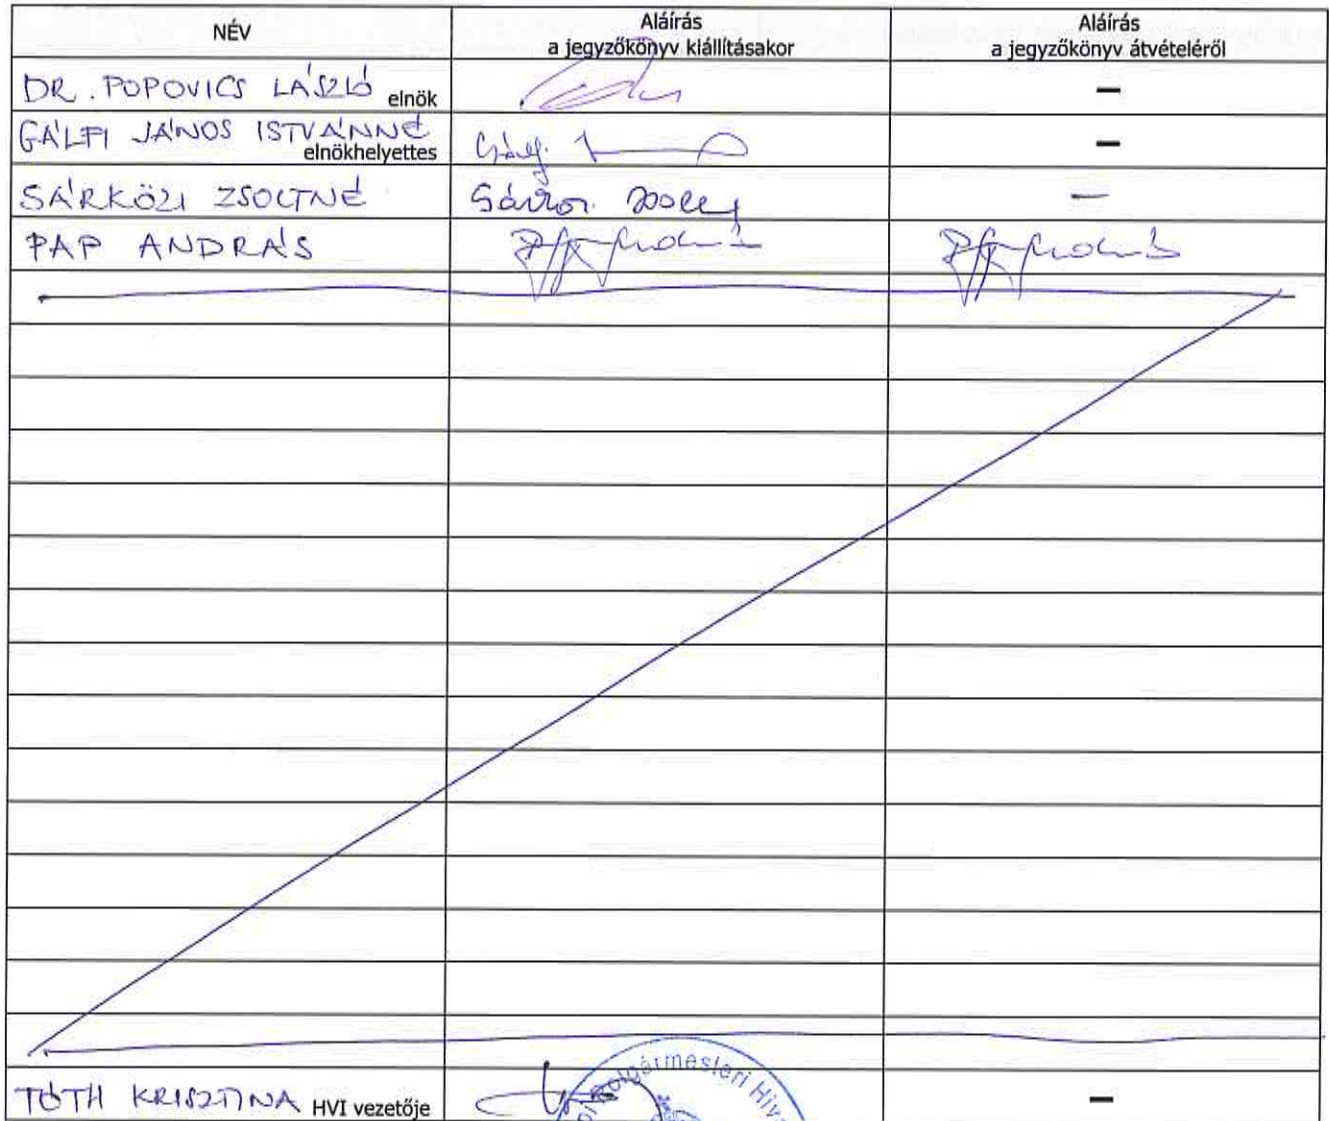 NÉV
Aláírás
a jegyzőkönyv kiállításakor
Aláírás
a jegyzőkönyv átvételéről
DR. POPOVICS LÁSZLÓ elnök
—
GÁLFI JÁNOS ISTVÁNNÉ
elnökhelyettes
—
SÁRKÖZI ZSOLTNÉ
—
PAP ANDRÁS
TÓTH KRISZTINA HVI vezetője
Polgármesteri
—